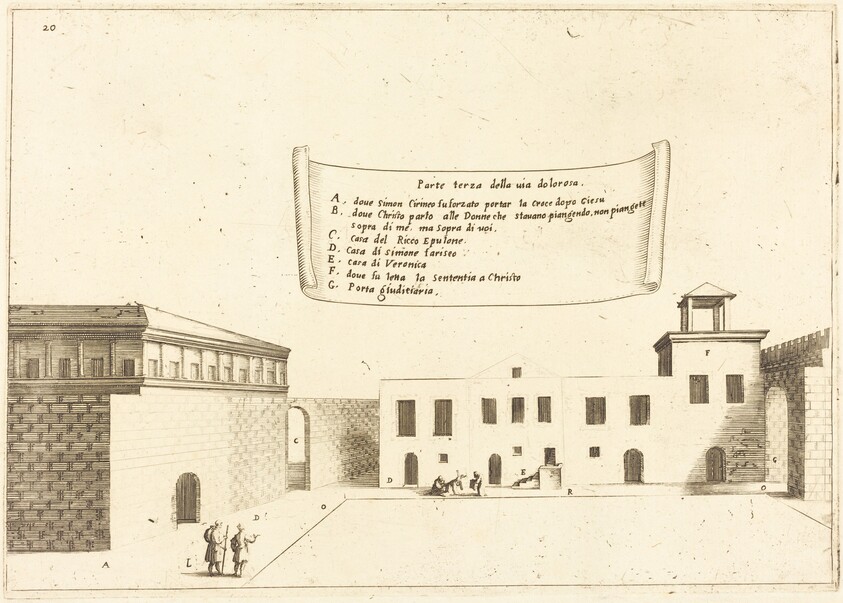 20
Parte terza della uia dolorosa.
A. doue Simon Cirineo fu forzato portar la Croce dopo Giesu
B. doue Christo parlo alle Donne che stauano piangendo, non piangete
sopra di me. ma sopra di uoi.
C. Casa del Ricco Epulone.
D. Casa di Simone fariseo.
E. casa di Veronica
F. doue fu letta la Sententia a Christo
G. Porta giudiciaria.
F
C
G
D
E
R
O
O
D
A
L